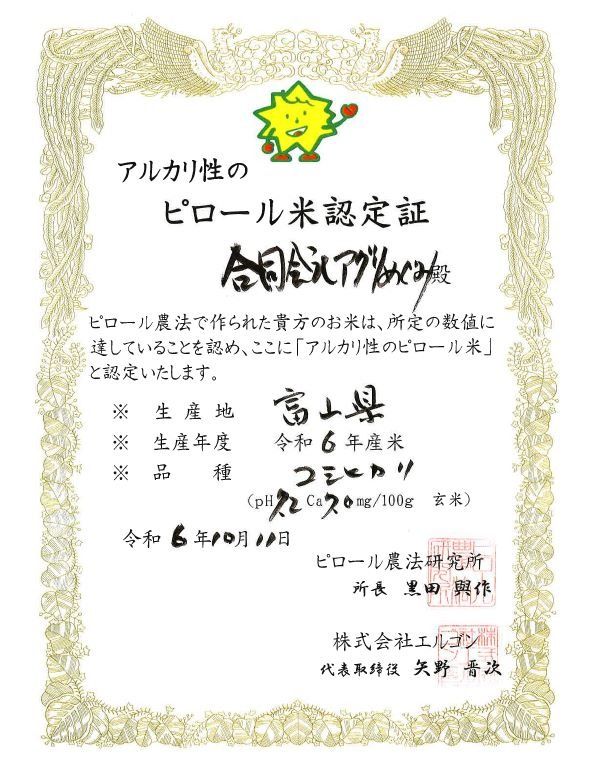 アルカリ性の
ピロール米認定証
合同会社アグリめぐみ殿
ピロール農法で作られた貴方のお米は、所定の数値に
達していることを認め、ここに「アルカリ性のピロール米」
と認定いたします。
※ 生産地 富山県
※ 生産年度 令和6年産米
※ 品種 コシヒカリ
(pH7.2 Ca7.0mg/100g 玄米)
令和6年10月11日
ピロール農法研究所
所長 黒田 與作
株式会社エルゴン
代表取締役 矢野 晋次